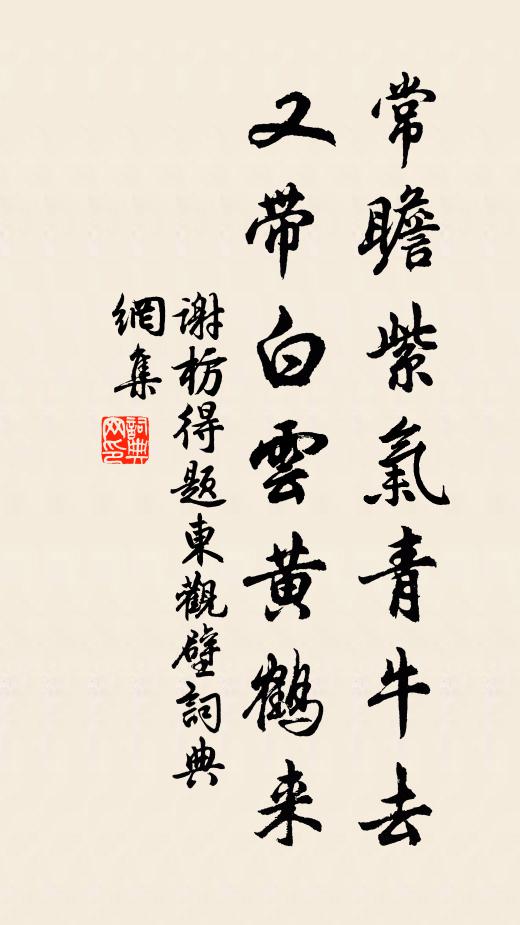 常瞻紫氣青牛去
又帶白雲黄鶴来
謝枋得題東觀壁詞典
網集
詞典
网印